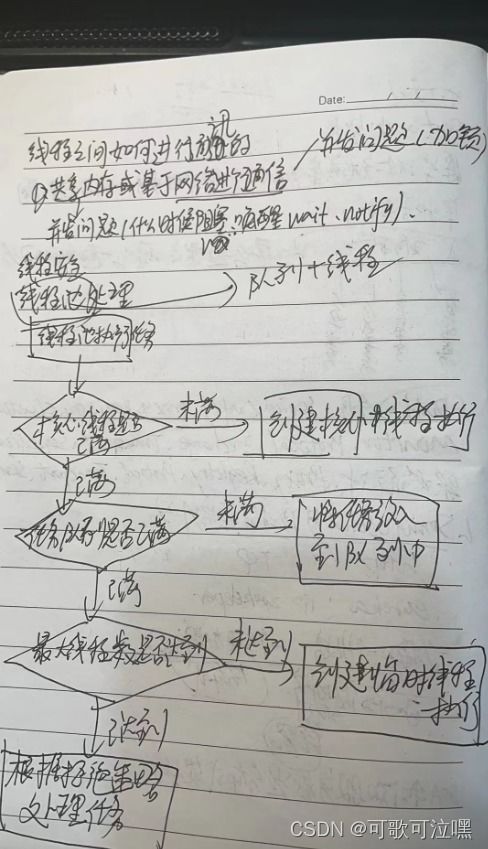 Date:
线程之间如何进行通讯的
①共享内存或基于网络进行通信
并发问题(加锁)
并发问题(什么时候阻塞、唤醒 wait、notify).
线程安全
线程池处理
队列+线程
线程池执行任务
核心线程是否已满
未满
创建核心线程执行
已满
任务队列是否已满
未满
将任务放入到队列中
已满
最大线程数是否达到
未达到
创建临时线程执行
已达到
根据拒绝策略处理任务
CSDN @可歌可泣嘿